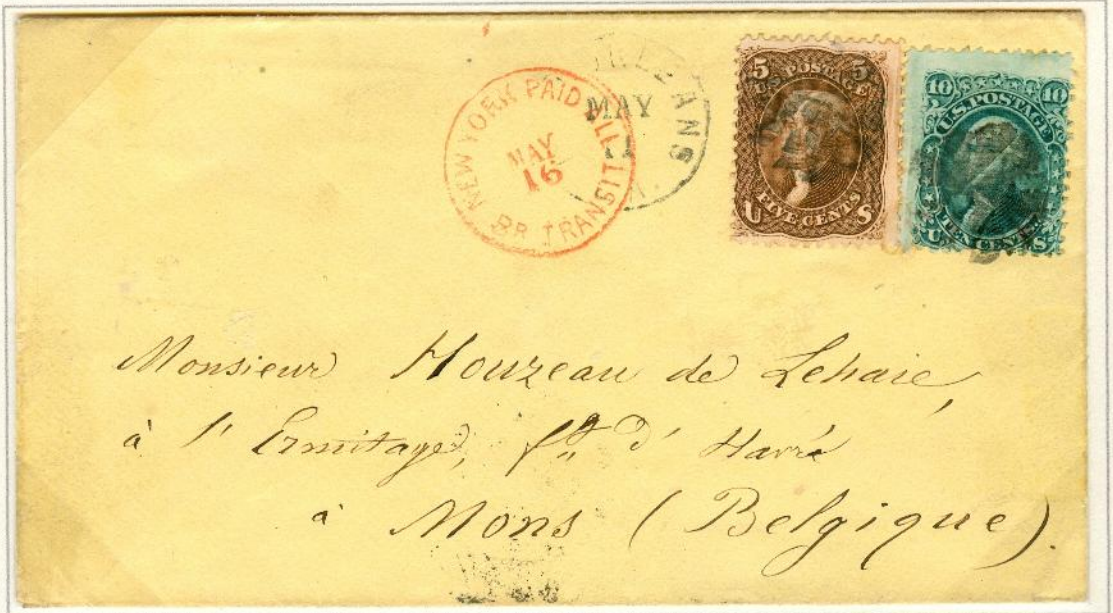 NEW YORK PAID ALL
MAY
16
BR. TRANSIT
ORLEANS
MAY
11
5 5
U.S. POSTAGE
FIVE CENTS
U S
10 10
U.S. POSTAGE
TEN CENTS
U S
Monsieur Houzeau de Lehaie,
à l'Ermitage, fg d'Havré
à Mons (Belgique).